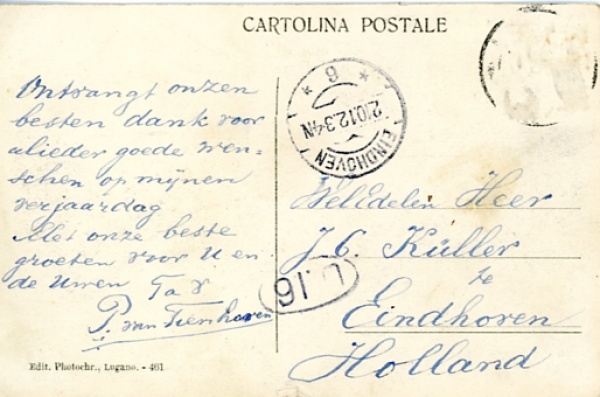 CARTOLINA POSTALE
Ontvangt onzen
besten dank voor
ulieder goede wen=
schen op mijnen
verjaardag
Met onze beste
groeten voor U en
de Uwen
P. van Tienhoven
EINDHOVEN
* 6 *
U.16
WelEdelen Heer
J. C. Küller
te
Eindhoven
Holland
Edit. Photochr., Lugano. - 461